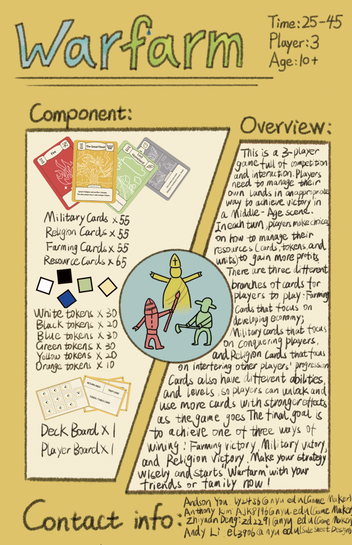 Warfarm
Time: 25-45
Player: 3
Age: 10+
Component:
Military Cards x 55
Religion Cards x 55
Farming Cards x 55
Resource Cards x 65
White tokens x 30
Black tokens x 20
Blue tokens x 30
Green tokens x 30
Yellow tokens x 20
Orange tokens x 10
Deck Board x 1
Player Board x 1
Overview:
This is a 3-player
game full of competition
and interaction. Players
need to manage their
own lands in an appropriate
way to achieve victory in
a Middle-Age scene.
In each turn, players make choices
on how to manage their
resources (cards, tokens and
units) to gain more profits.
There are three different
branches of cards for
players to play: Farming
Cards that focus on
developing economy;
Military cards that focus
on conquering players,
and Religion Cards that focus
on interfering other players' progression
Cards also have different abilities,
and levels, so players can unlock and
use more cards with stronger effects
as the game goes. The final goal is
to achieve one of three ways of
wining: Farming victory, Military victory,
and Religion Victory. Make your strategy
wisely and starts Warfarm with your
friends or family now!
Contact info:
Andson You
@nyu.edu (Game Maker)
Anthony Kim
@nyu.edu (Game Maker)
Zhiyuan Deng: zd2291@nyu.edu (Game Maker)
Andy Li el3906@nyu.edu (Sale Sheet Design)